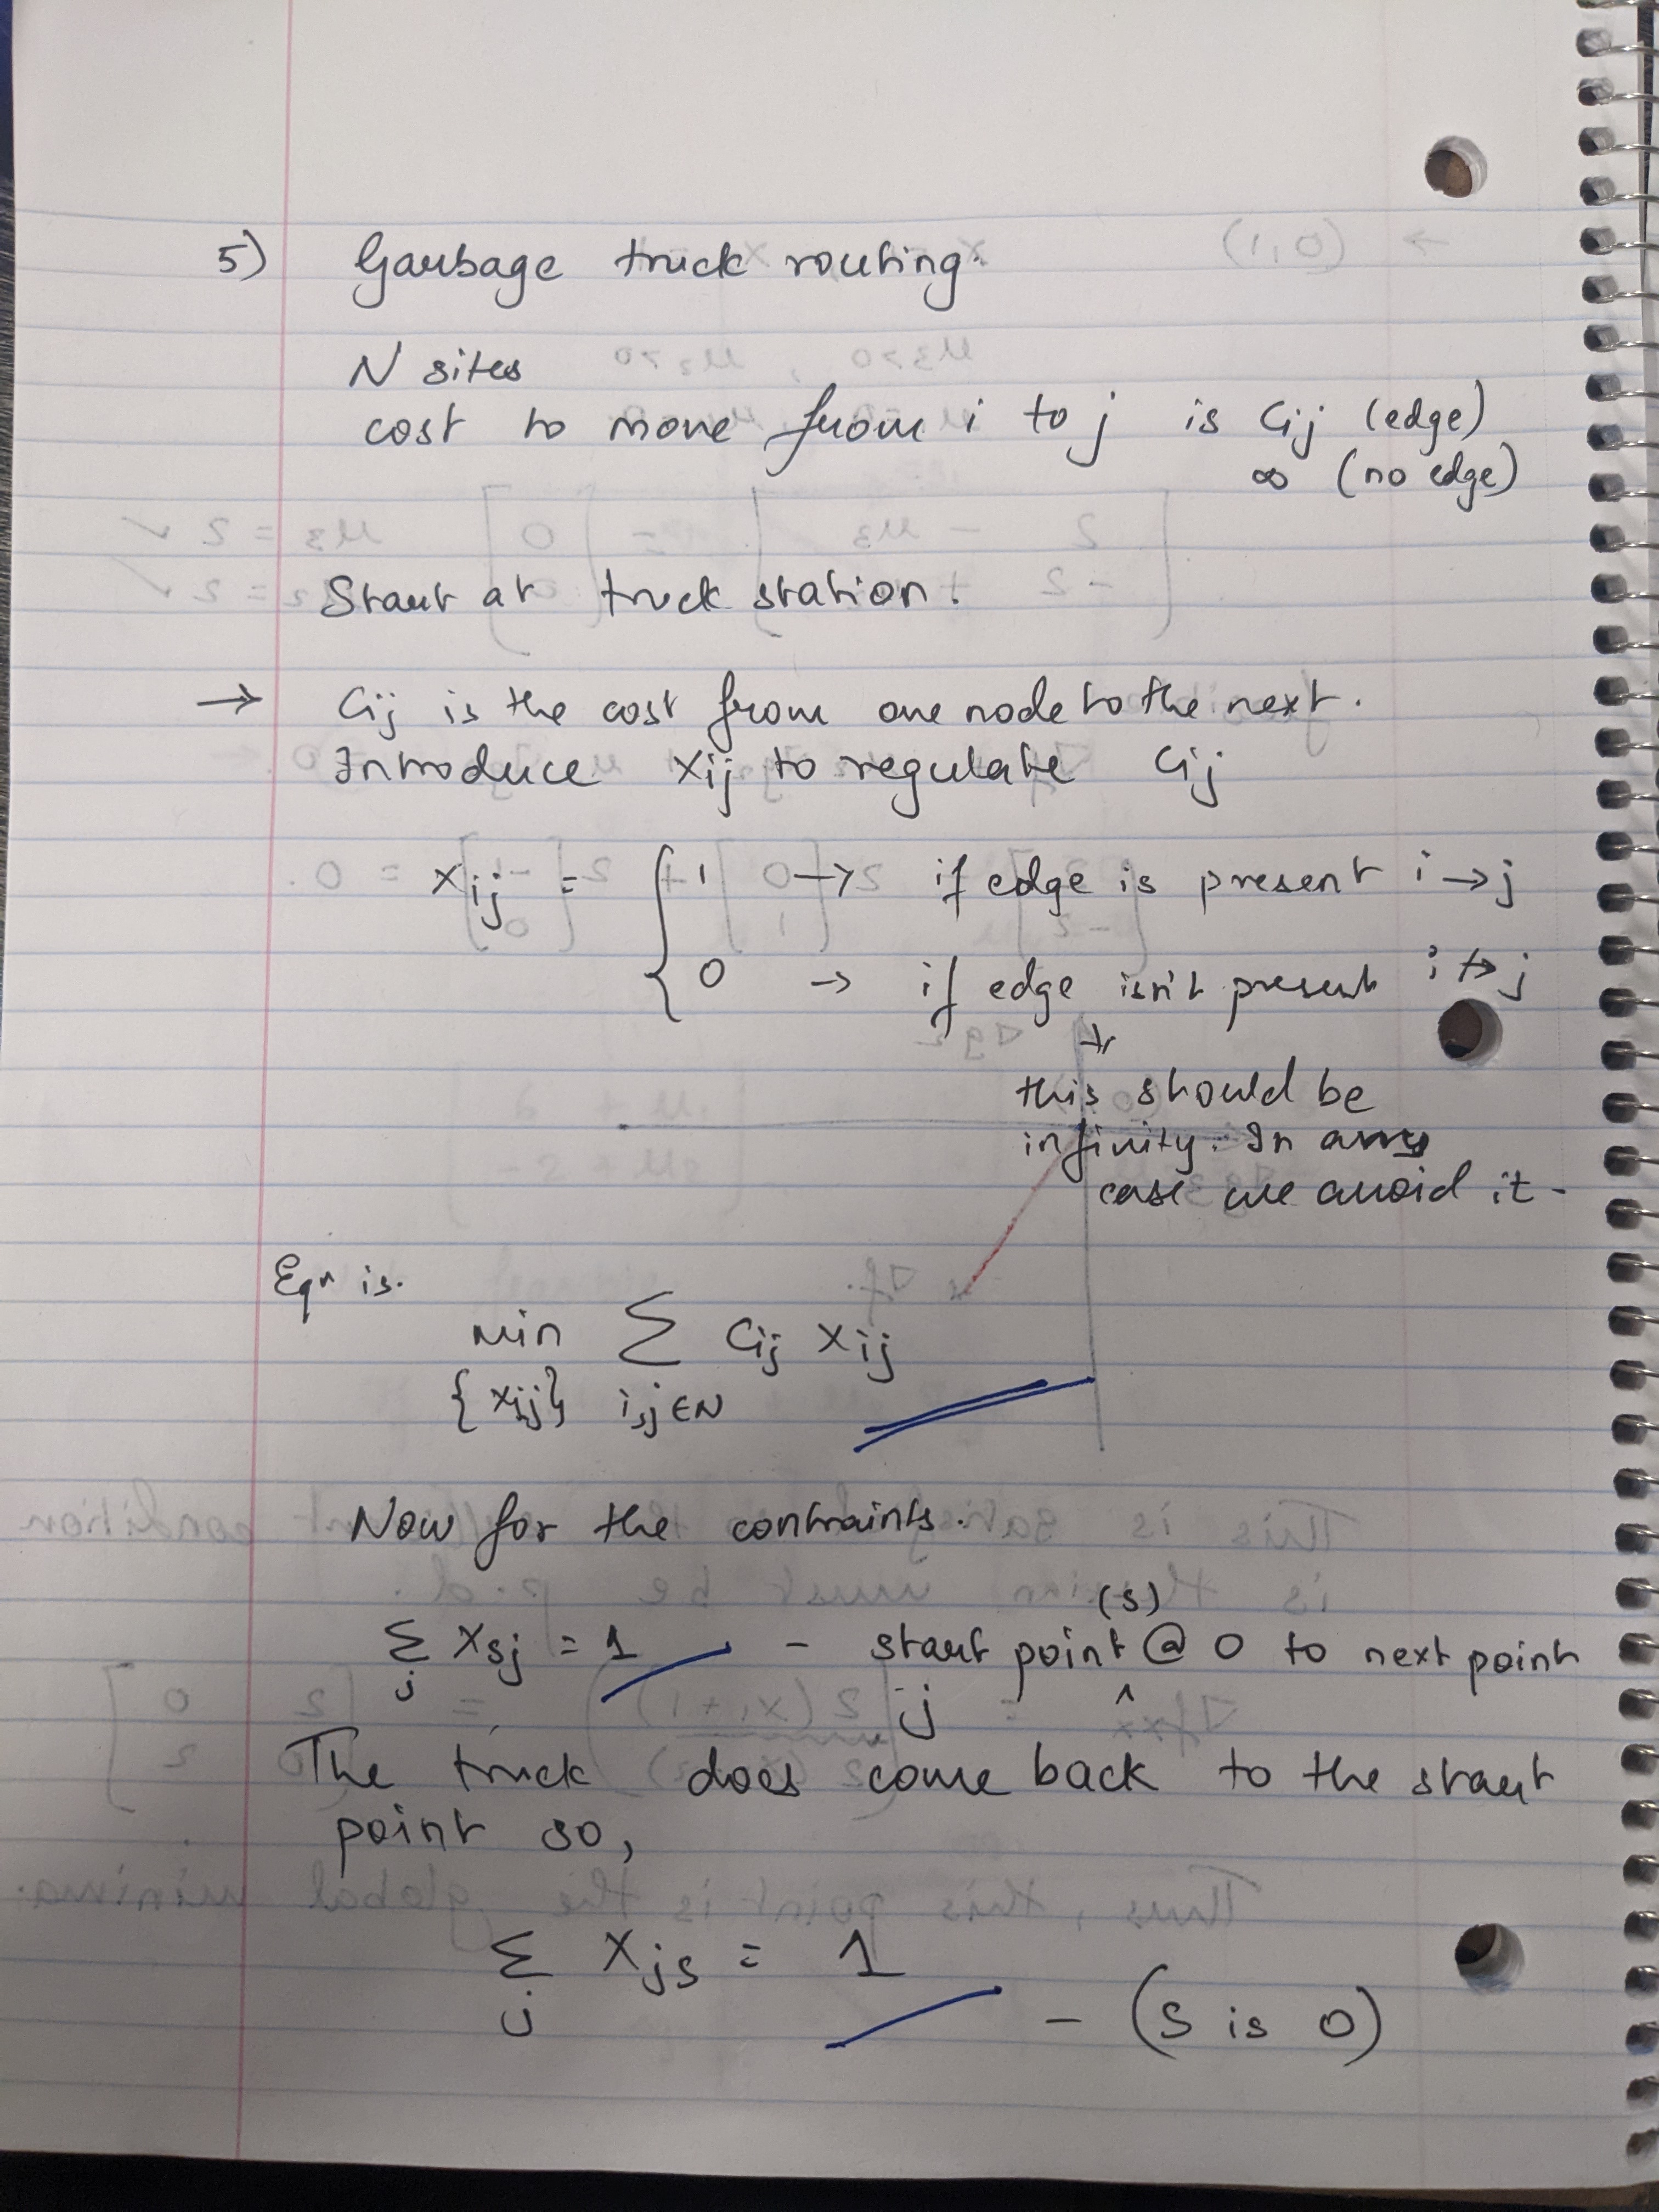 5) Garbage truck routing.
N sites
cost to move from i to j is Cij (edge)
∞ (no edge)
Start at truck station.
→ Cij is the cost from one node to the next.
Introduce xij to regulate Cij
xij = { 1 → if edge is present i → j
0 → if edge isn't present i ↛ j
this should be
infinity. In any
case we avoid it -
Eqn is.
min Σ Cij xij
{xij} i,j ∈ N
Now for the contraints.
(s)
Σ xsj = 1 - start point @ 0 to next point
j ^ j
The truck does come back to the start
point so,
Σ xjs = 1
j - (S is 0)